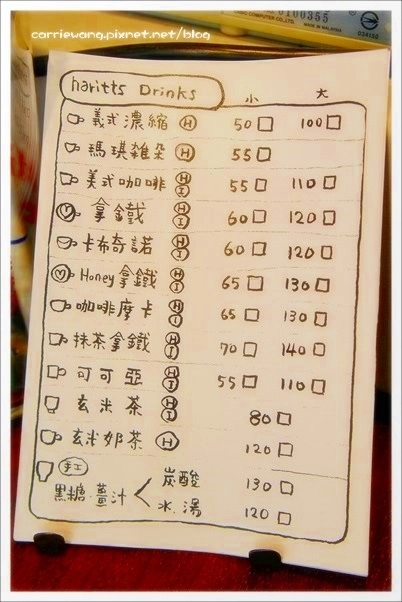 carriewang.pixnet.net/blog
0100355
MADE IN MALAYSIA
haritts Drinks 小 大
義式濃縮 H 50 100
瑪琪雜朵 H 55
美式咖啡 H I 55 110
拿鐵 H I 60 120
卡布奇諾 H I 60 120
Honey拿鐵 H I 65 130
咖啡摩卡 H I 65 130
抹茶拿鐵 H I 70 140
可可亞 H I 55 110
玄米茶 H I 80
玄米奶茶 H 120
手工
黑糖·薑汁 < 炭酸 130
水.湯 120